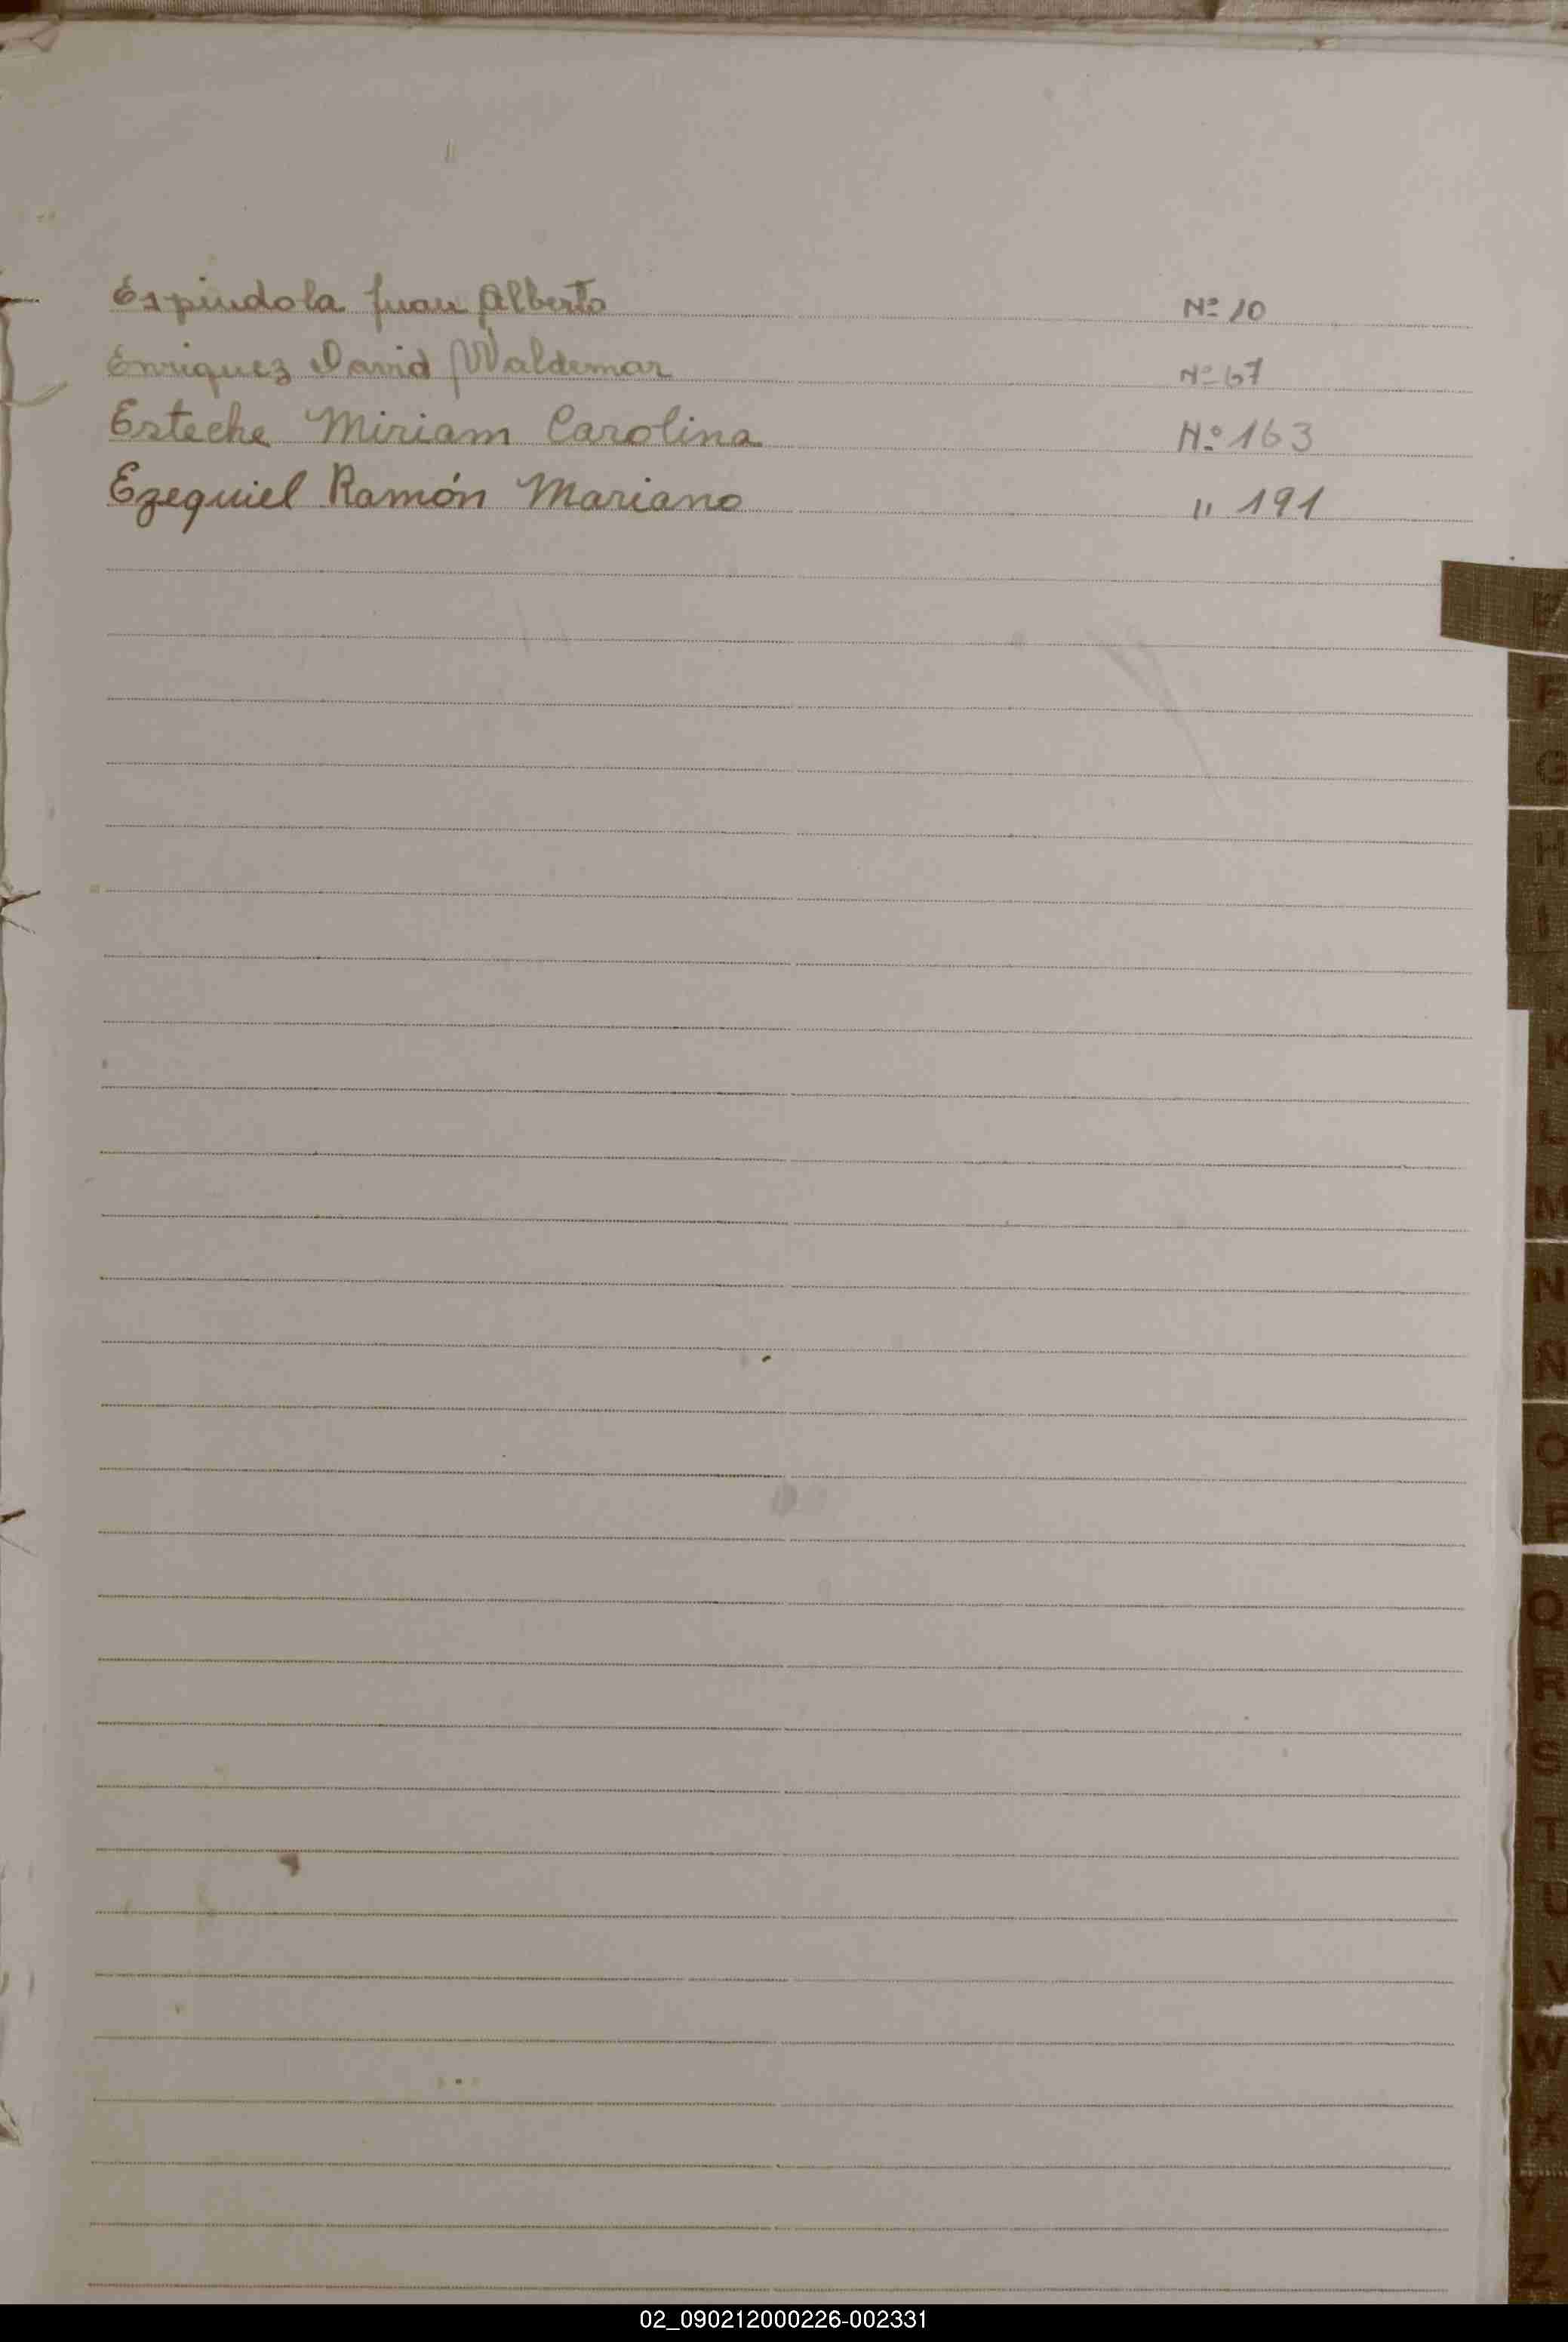 Espindola Juan Alberto Nº 10
Enriquez David Waldemar Nº 67
Esteche Miriam Carolina Nº 163
Ezequiel Ramón Mariano " 191
E
F
G
H
I
K
L
M
N
Ñ
O
P
Q
R
S
T
U
V
W
X
Y
Z
02_090212000226-002331